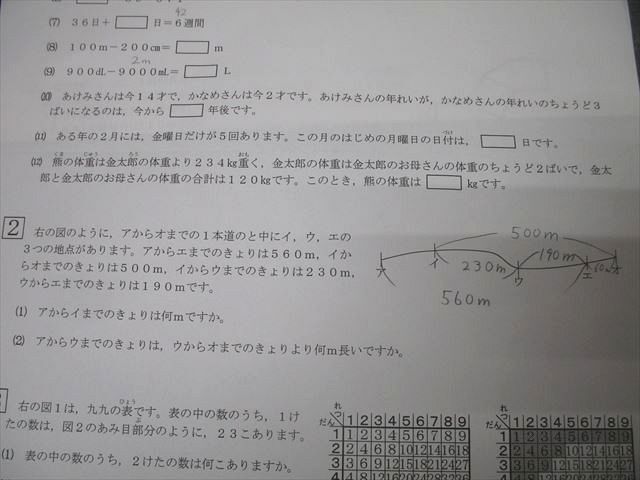 42
(7) 36日+□日=6週間
(8) 100m-200cm=□m
2m
(9) 900dL-9000mL=□L
(10) あけみさんは今14才で，かなめさんは今2才です。あけみさんの年れいが，かなめさんの年れいのちょうど3
ばいになるのは，今から□年後です。
(11) ある年の2月には，金曜日だけが5回あります。この月のはじめの月曜日の日付は，□日です。
(12) 熊の体重は金太郎の体重より234kg重く，金太郎の体重は金太郎のお母さんの体重のちょうど2ばいで，金太
郎と金太郎のお母さんの体重の合計は120kgです。このとき，熊の体重は□kgです。
2 右の図のように，アからオまでの1本道のと中にイ，ウ，エの
3つの地点があります。アからエまでのきょりは560m，イか
らオまでのきょりは500m，イからウまでのきょりは230m，
ウからエまでのきょりは190mです。
(1) アからイまでのきょりは何mですか。
(2) アからウまでのきょりは，ウからオまでのきょりより何m長いですか。
500m
ア イ 230m ウ 190m エ
560m
右の図1は，九九の表です。表の中の数のうち，1け
たの数は，図2のあみ目部分のように，23こあります。
(1) 表の中の数のうち，2けたの数は何こありますか。
れつ
だん 1 2 3 4 5 6 7 8 9
1 1 2 3 4 5 6 7 8 9
2 2 4 6 8 10 12 14 16 18
3 3 6 9 12 15 18 21 24 27
れつ
だん 1 2 3 4 5 6 7 8 9
1 1 2 3 4 5 6 7 8 9
2 2 4 6 8 10 12 14 16 18
3 3 6 9 12 15 18 21 24 27